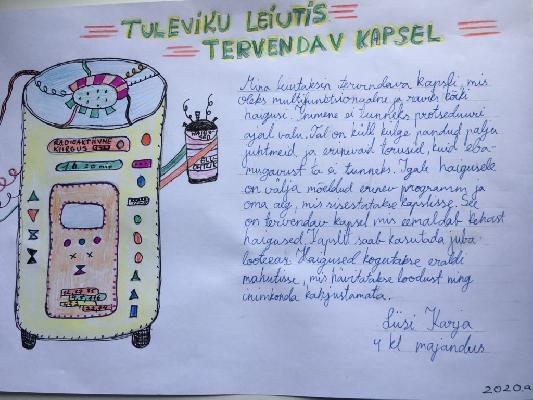 TULEVIKU LEIUTIS
TERVENDAV KAPSEL
Mina leiutaksin tervendava kapsli, mis
oleks multifunktsionaalne ja raviks kõiki
haigusi. Inimene ei tunneks protseduuri
ajal valu. Tal on küll külge pandud palju
juhtmeid ja erinevad torusid, kuid eba-
mugavust ta ei tunneks. Igale haigusele
on välja mõeldud erinev programm ja
oma aeg, mis sisestatakse kapslisse. See
on tervendav kapsel mis eemaldab kehast
haigused. Kapslit saab kasutada juba
looteeas. Haigused kogutakse eraldi
mahutisse, mis hävitatakse loodust ning
inimkonda kahjustamata.
Liisi Karja
4 kl majandus
2020.a
RADIOAKTIIVNE
KIIRGUS
1h 20 min